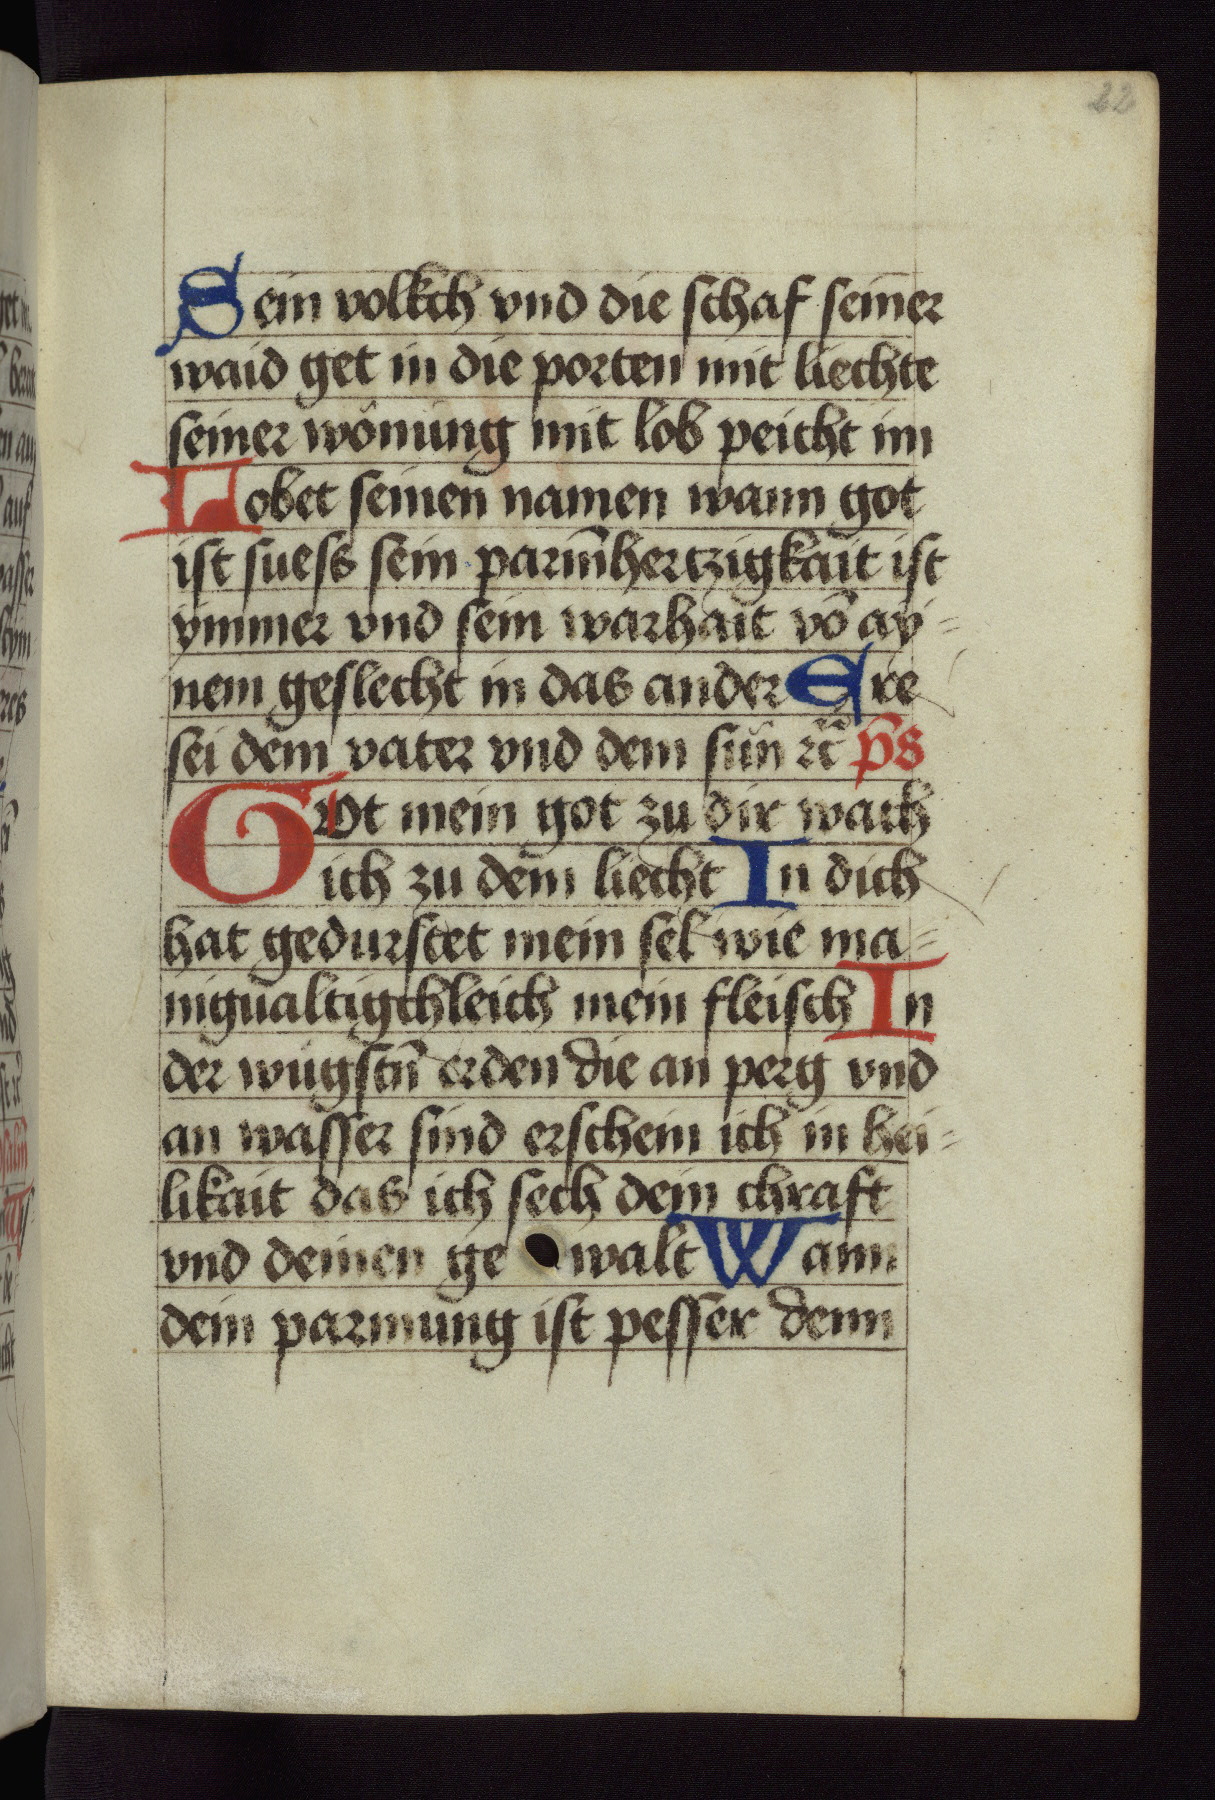 22
Sein volkch vnd die schaf seiner
waid get in die porten mit liechte
seiner wonũng mit lob peicht im
Lobet seinen namen wann got
ist suess sein parm̄hertzigkait ist
ymmer vnd sein warhait vō ay=
nem geslecht in das ander Ere
sei dem vater vnd dem sũn ꝛc̄ ps
GOt mein got zu dir wach
ich zu dem liecht In dich
hat gedurstet mein sel wie ma=
nigualtigchleich mein fleisch In
der wũgstn̄ erden die an perg vnd
an wasser sind erschein ich in hei=
likait das ich sech dein chraft
vnd deinen ge walt Wann
dein parmung ist pesser denn